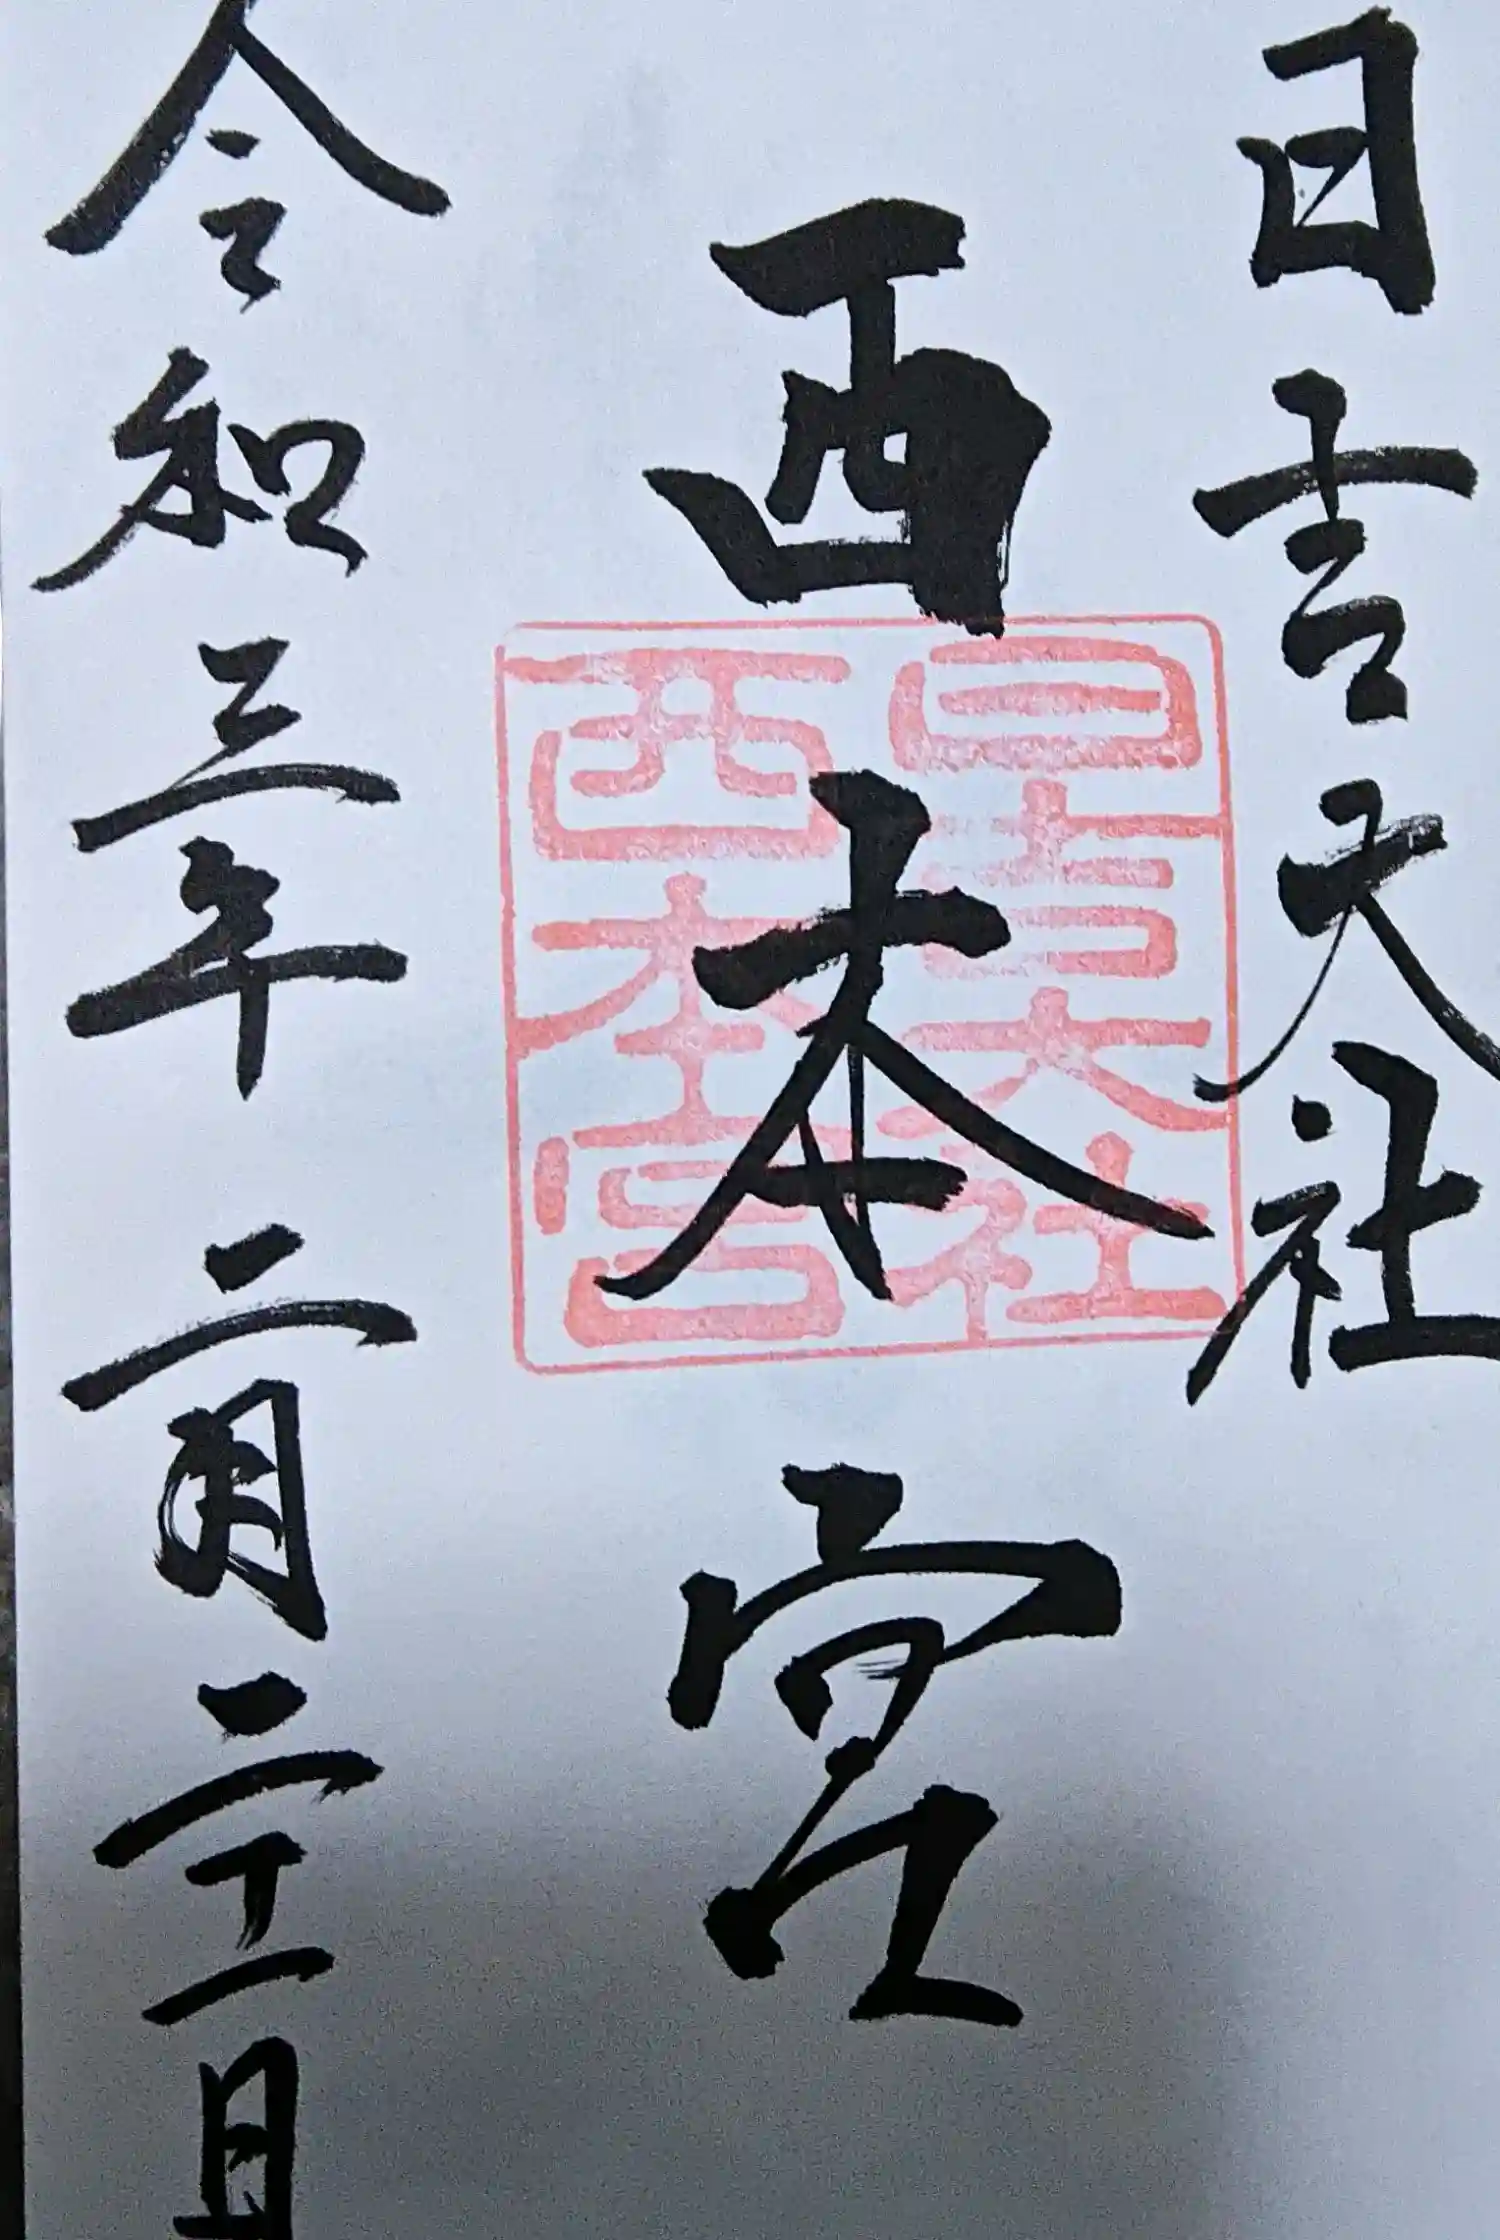 日吉大社
西本宮
日吉大社
西本宮
令和三年二月二十一日